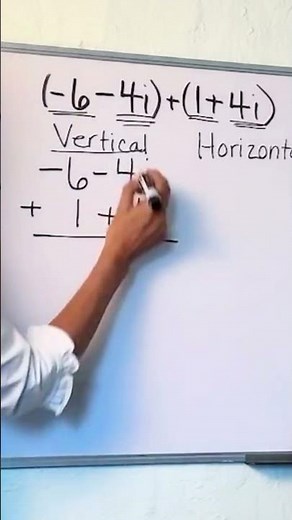 (-6-4i)+(1+4i)
Vertical Horizont
-6-4
+ 1 +